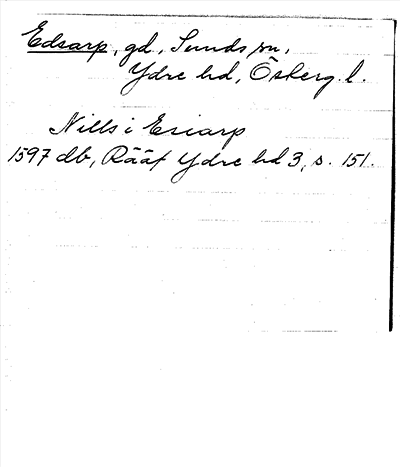 Edsarp, gd, Sunds sn,
Ydre hd, Österg. l.
Nills i Esiarp
1597 db, Rääf Ydre hd 3, s. 151.